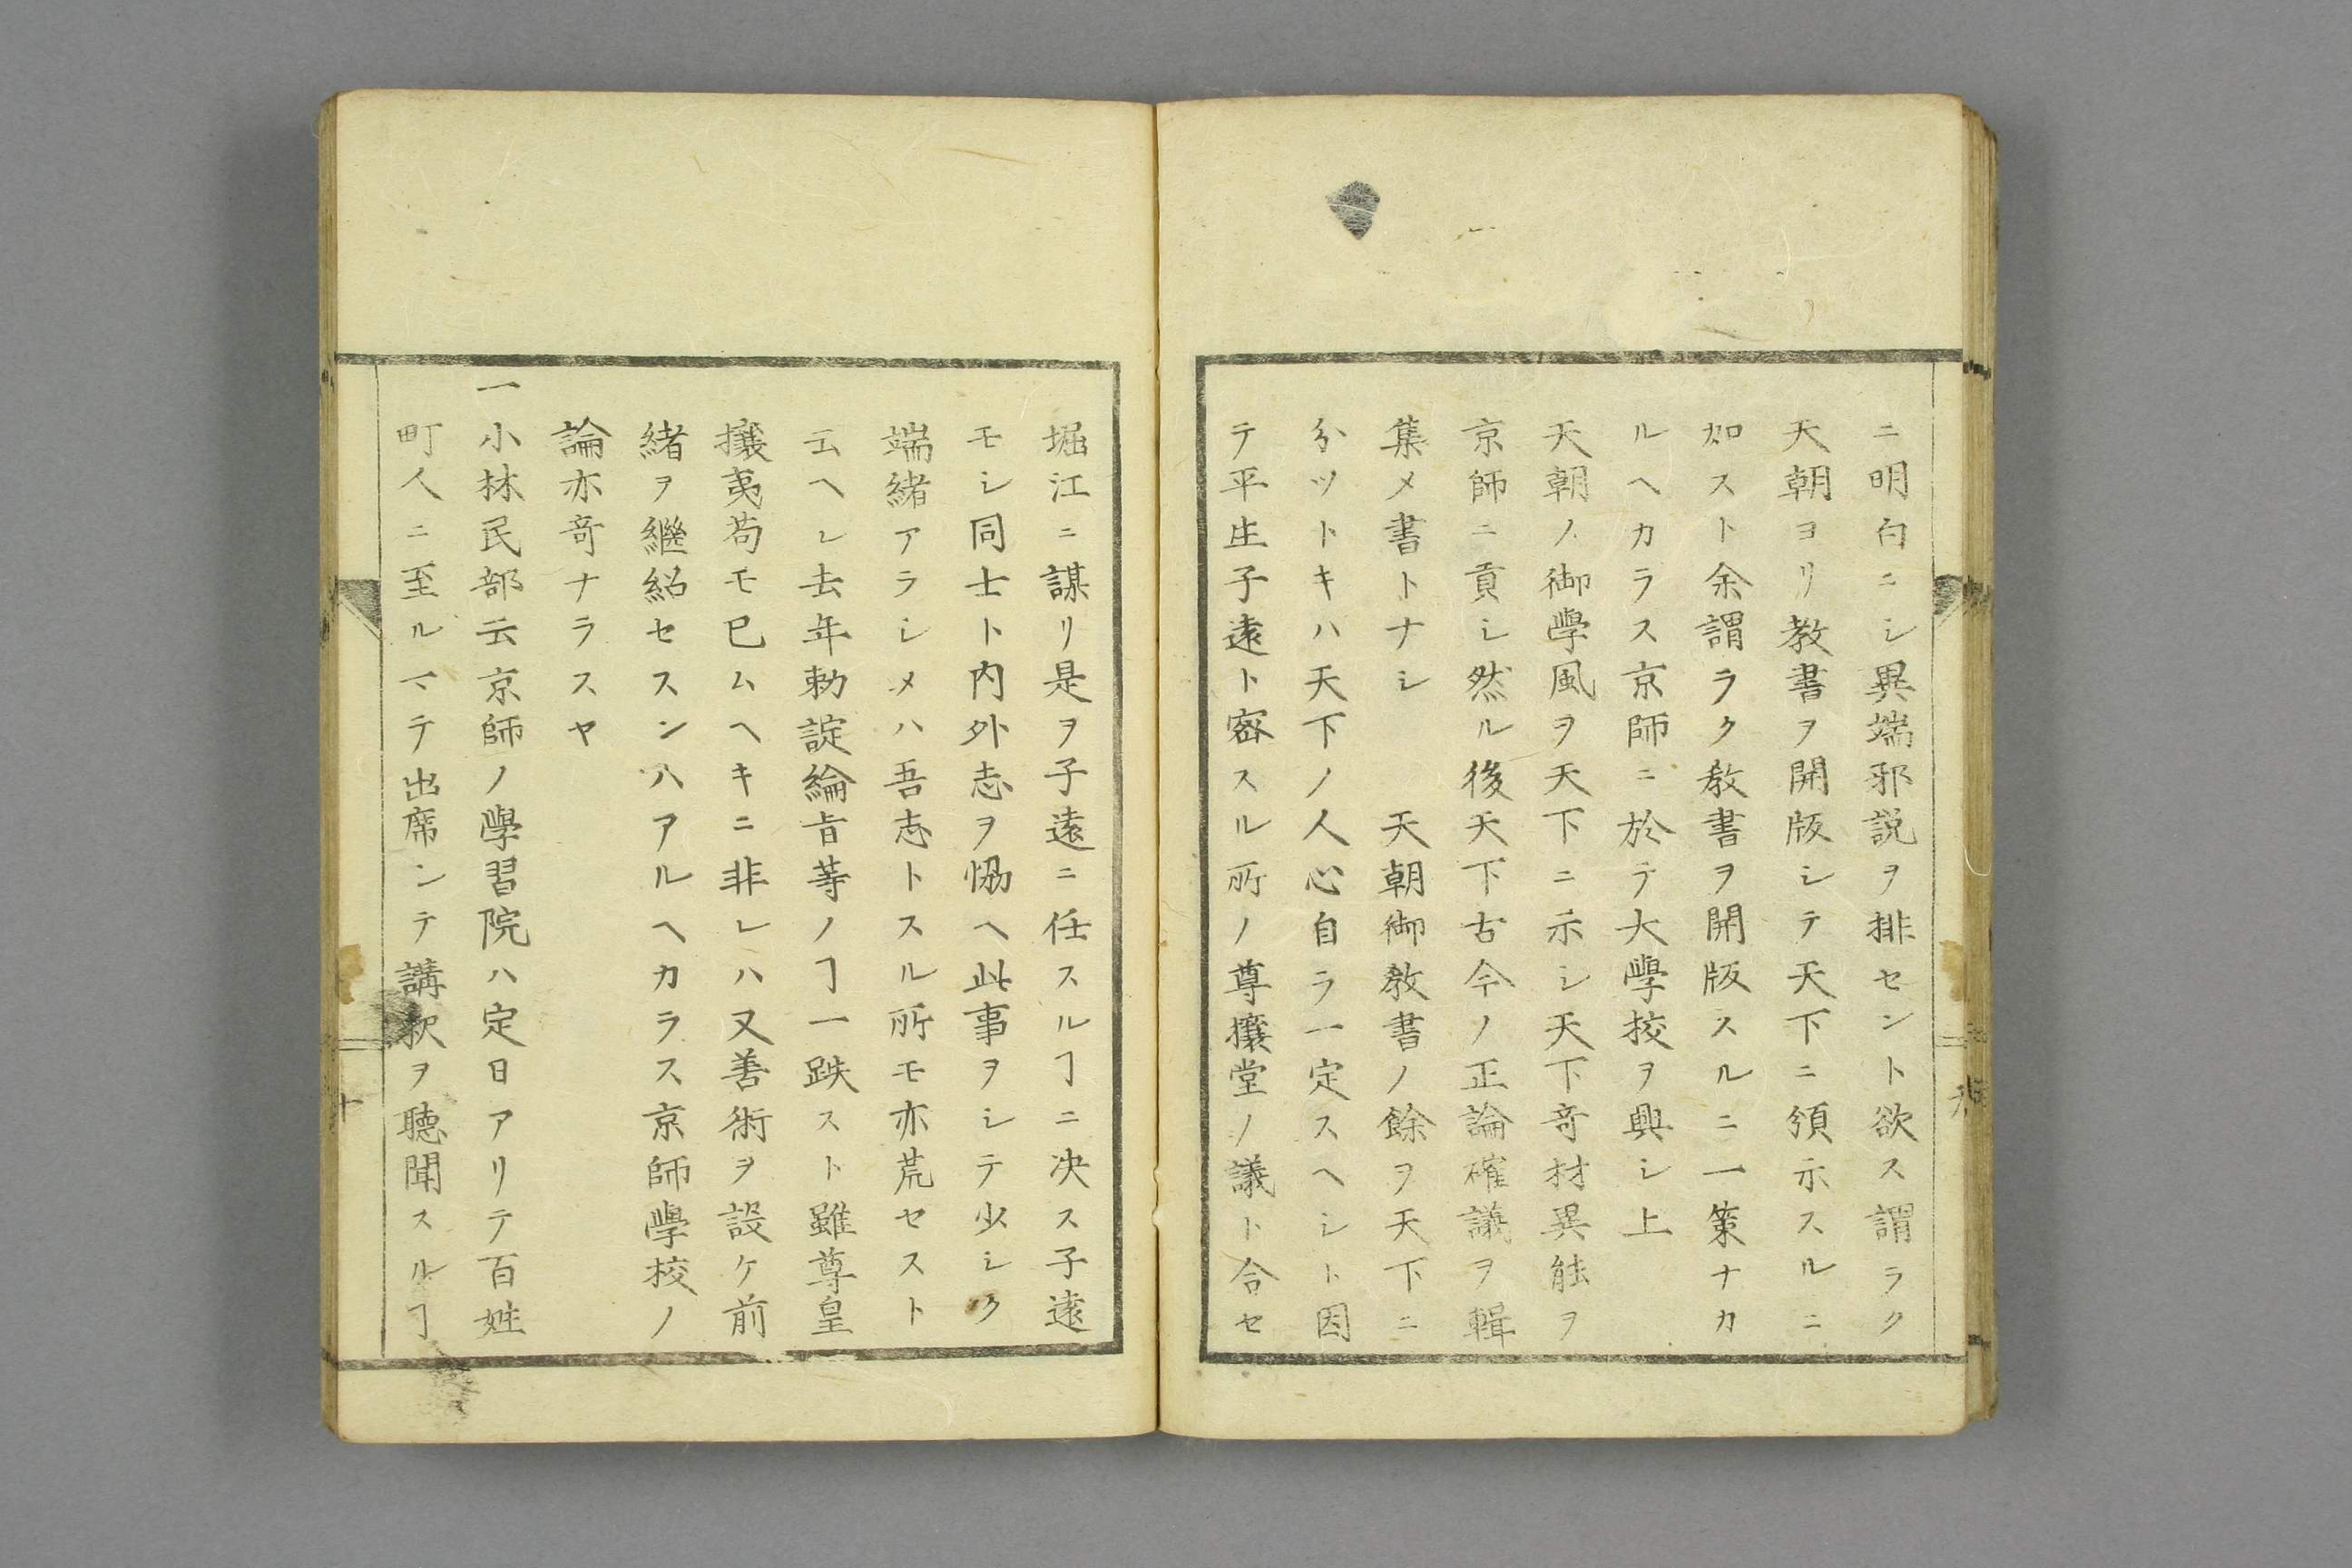 ニ明白ニシ異端邪説ヲ排セント欲ス謂ラク
天朝ヨリ教書ヲ開版シテ天下ニ頒示スルニ
如スト余謂ラク教書ヲ開版スルニ一策ナカ
ルヘカラス京師ニ於テ大學校ヲ興シ上
天朝ノ御學風ヲ天下ニ示シ天下竒材異能ヲ
京師ニ貢シ然ル後天下古今ノ正論確議ヲ輯
集メ書トナシ　天朝御教書ノ餘ヲ天下ニ
分ツトキハ天下ノ人心自ラ一定スヘシト因
テ平生子遠ト密スル所ノ尊攘堂ノ議ト合セ
堀江ニ謀リ是ヲ子遠ニ任スルヿニ决ス子遠
モシ同士ト内外志ヲ恊ヘ此事ヲシテ少シク
端緒アラシメハ吾志トスル所モ亦荒セスト
云ヘシ去年勅諚綸旨等ノヿ一跌スト雖尊皇
攘夷苟モ已ムヘキニ非レハ又善術ヲ設ケ前
緒ヲ繼紹セスンハアルヘカラス京師學校ノ
論亦竒ナラスヤ
一小林民部云京師ノ學習院ハ定日アリテ百姓
町人ニ至ルマテ出席シテ講釈ヲ聴聞スルヿ